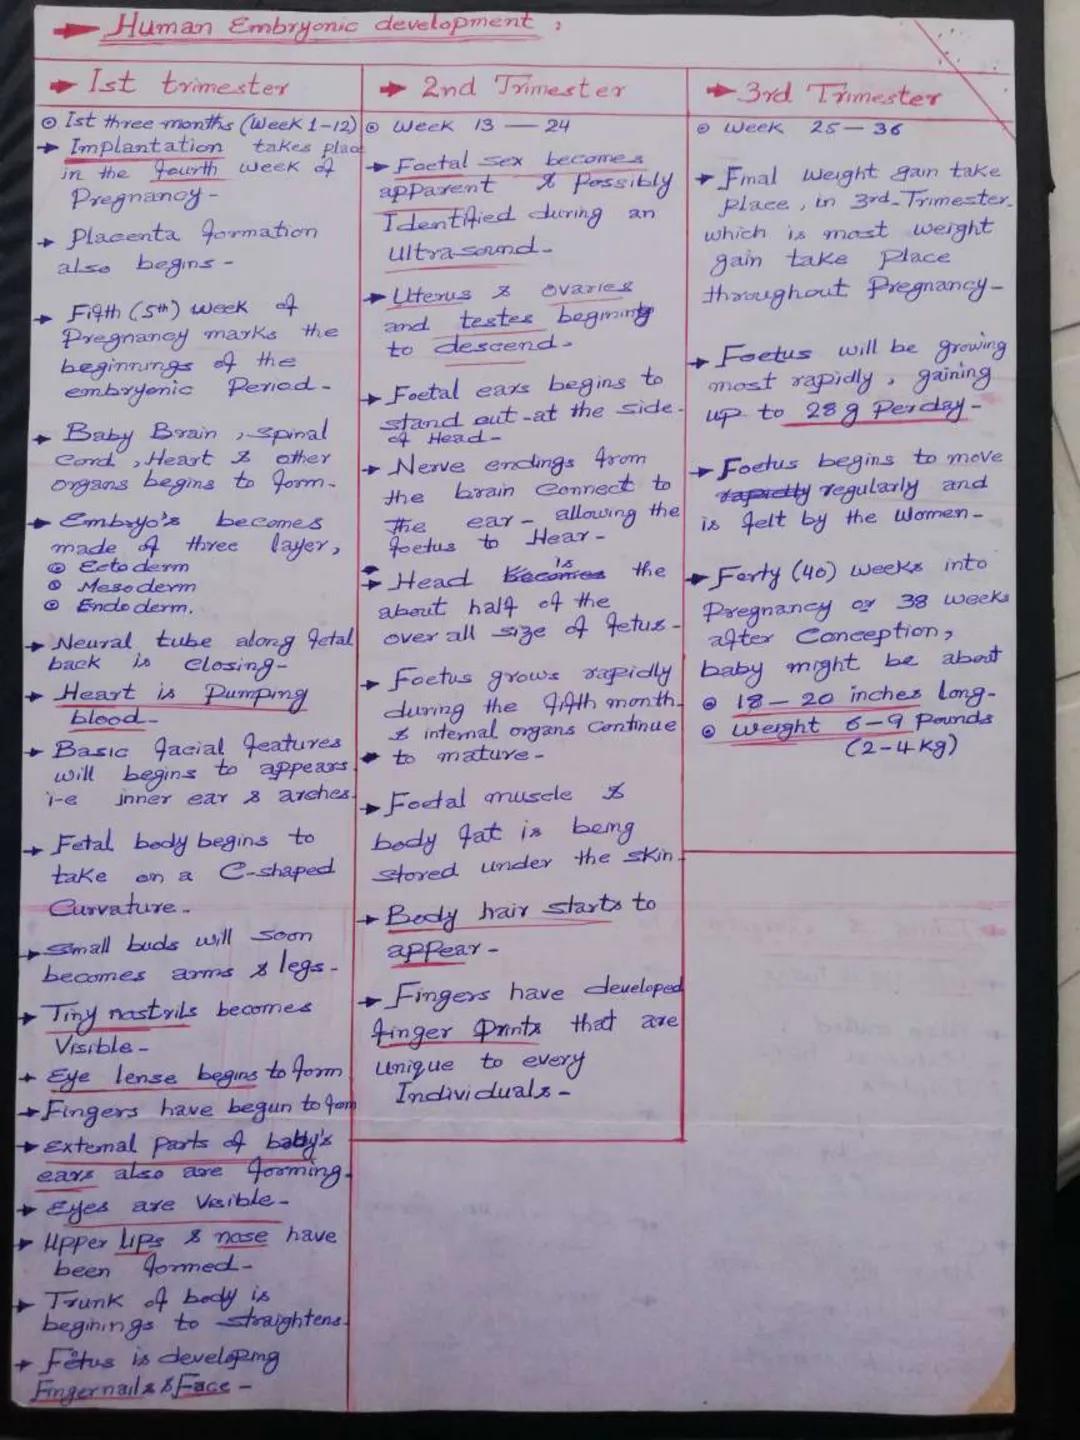 Human Embryonic development :
Ist trimester
Ist three months (Week 1-12)
Implantation takes plac
in the fourth week of
Pregnancy -
Placenta formation
also begins -
Fifth (5th) week of
Pregnancy marks the
beginnings of the
embryonic Period -
Baby Brain , spinal
Cord , Heart & other
organs begins to form -
Embryo's becomes
made of three layer,
Ectoderm
Mesoderm
Endoderm.
Neural tube along fetal
back is closing -
Heart is Pumping
blood -
Basic facial features
will begins to appears
i-e inner ear & arches.
Fetal body begins to
take on a C-shaped
Curvature -
small buds will soon
becomes arms & legs -
Tiny nostrils becomes
Visible -
Eye lense begins to form
Fingers have begun to form
External parts of baby's
ears also are forming.
Eyes are Visible -
Upper lips & nose have
been formed -
Trunk of body is
beginings to straightens.
Fetus is developing
Fingernails & Face -
2nd Trimester
Week 13 — 24
Foetal sex becomes
apparent & Possibly
Identified during an
ultrasound -
Uterus & ovaries
and testes begining
to descend -
Foetal ears begins to
stand out at the side
of Head -
Nerve endings from
the brain Connect to
the ear - allowing the
foetus to Hear -
is
Head becomes the
about half of the
over all size of fetus -
Foetus grows rapidly
during the fifth month
& internal organs Continue
to mature -
Foetal muscle &
body fat is being
stored under the skin
Body hair starts to
appear -
Fingers have developed
finger prints that are
unique to every
Individuals -
3rd Trimester
Week 25 — 36
Final weight gain take
place , in 3rd-Trimester.
which is most weight
gain take Place
throughout Pregnancy -
Foetus will be growing
most rapidly , gaining
up to 28 g Perday -
Foetus begins to move
rapidly regularly and
is felt by the women -
Forty (40) weeks into
Pregnancy or 38 weeks
after Conception,
baby might be about
18 - 20 inches long -
Weight 6-9 Pounds
(2-4 kg)